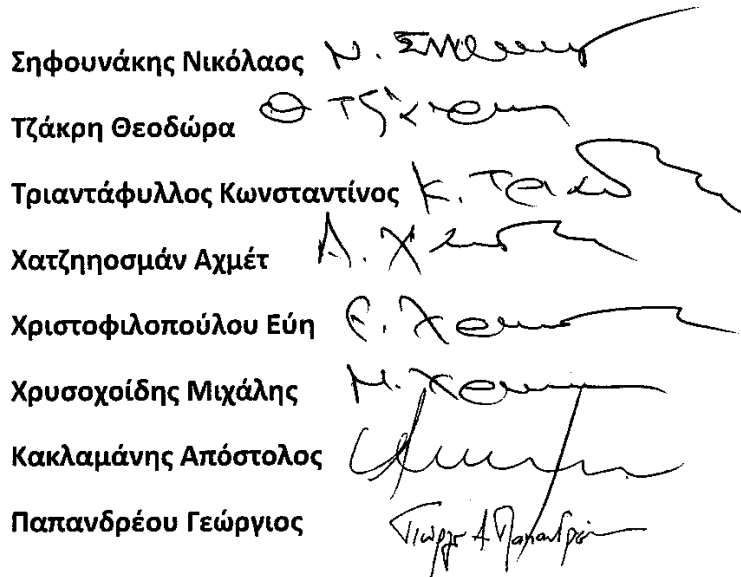 Σηφουνάκης Νικόλαος Ν. Σηφουν
Τζάκρη Θεοδώρα Θ Τζάκρη
Τριαντάφυλλος Κωνσταντίνος Κ. Τρια
Χατζηοσμάν Αχμέτ Α. Χ
Χριστοφιλοπούλου Εύη Ε. Χρ
Χρυσοχοίδης Μιχάλης Μ. Χρ
Κακλαμάνης Απόστολος
Παπανδρέου Γεώργιος Γιώργος Α. Παπανδρέου